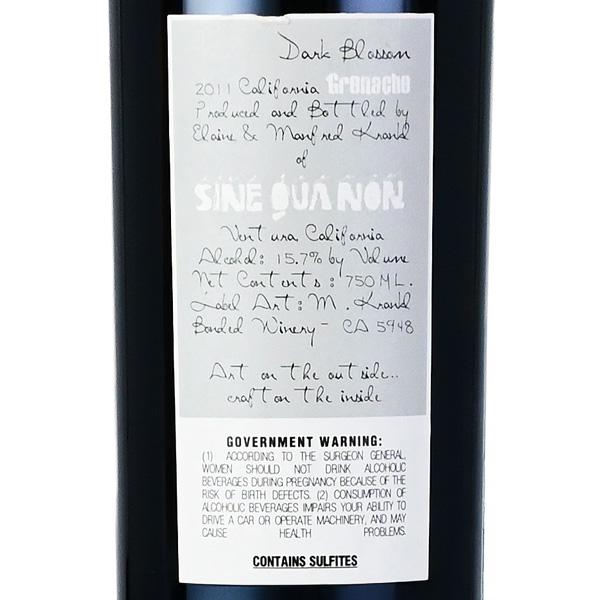 Dark Blossom
2011 California Grenache
Produced and Bottled by
Elaine & Manfred Krankl
of
SINE QUA NON
Ventura, California
Alcohol: 15.7% by Volume
Net Contents: 750 ML.
Label Art: M. Krankl
Bonded Winery - CA 5948
Art on the outside..
craft on the inside
GOVERNMENT WARNING:
(1) ACCORDING TO THE SURGEON GENERAL,
WOMEN SHOULD NOT DRINK ALCOHOLIC
BEVERAGES DURING PREGNANCY BECAUSE OF THE
RISK OF BIRTH DEFECTS. (2) CONSUMPTION OF
ALCOHOLIC BEVERAGES IMPAIRS YOUR ABILITY TO
DRIVE A CAR OR OPERATE MACHINERY, AND MAY
CAUSE HEALTH PROBLEMS.
CONTAINS SULFITES